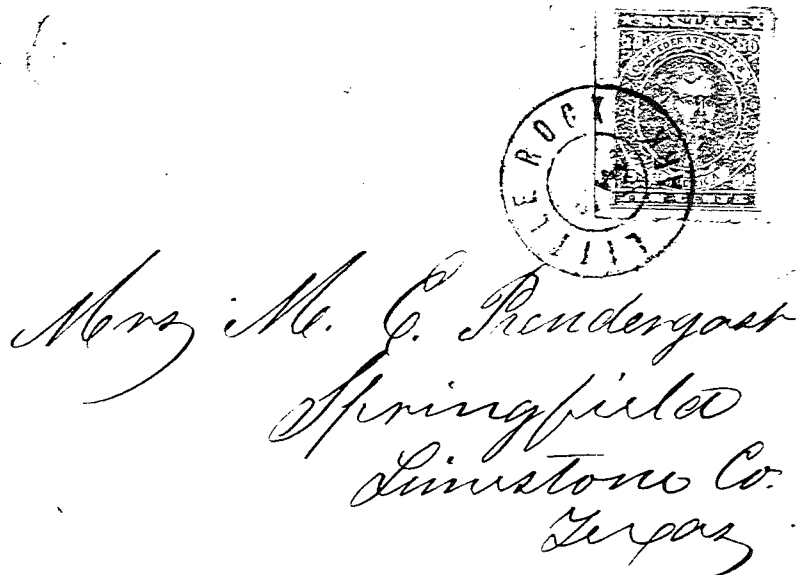 POSTAGE
CONFEDERATE STATES
LITTLE ROCK
ARK
Mrs M. E. Prendergast
Springfield
Limestone Co.
Texas